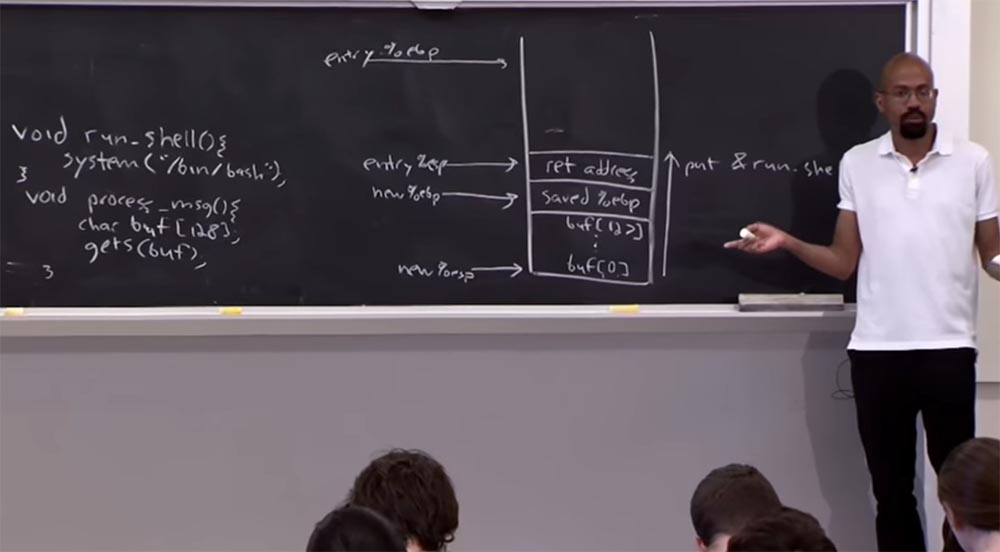 void run_shell(){
system("/bin/bash");
}
void process_msg(){
char buf[128];
gets(buf);
}
entry %ebp
entry %esp
new %ebp
new %esp
ret address
saved %ebp
buf[127]
⋮
buf[0]
put & run_she